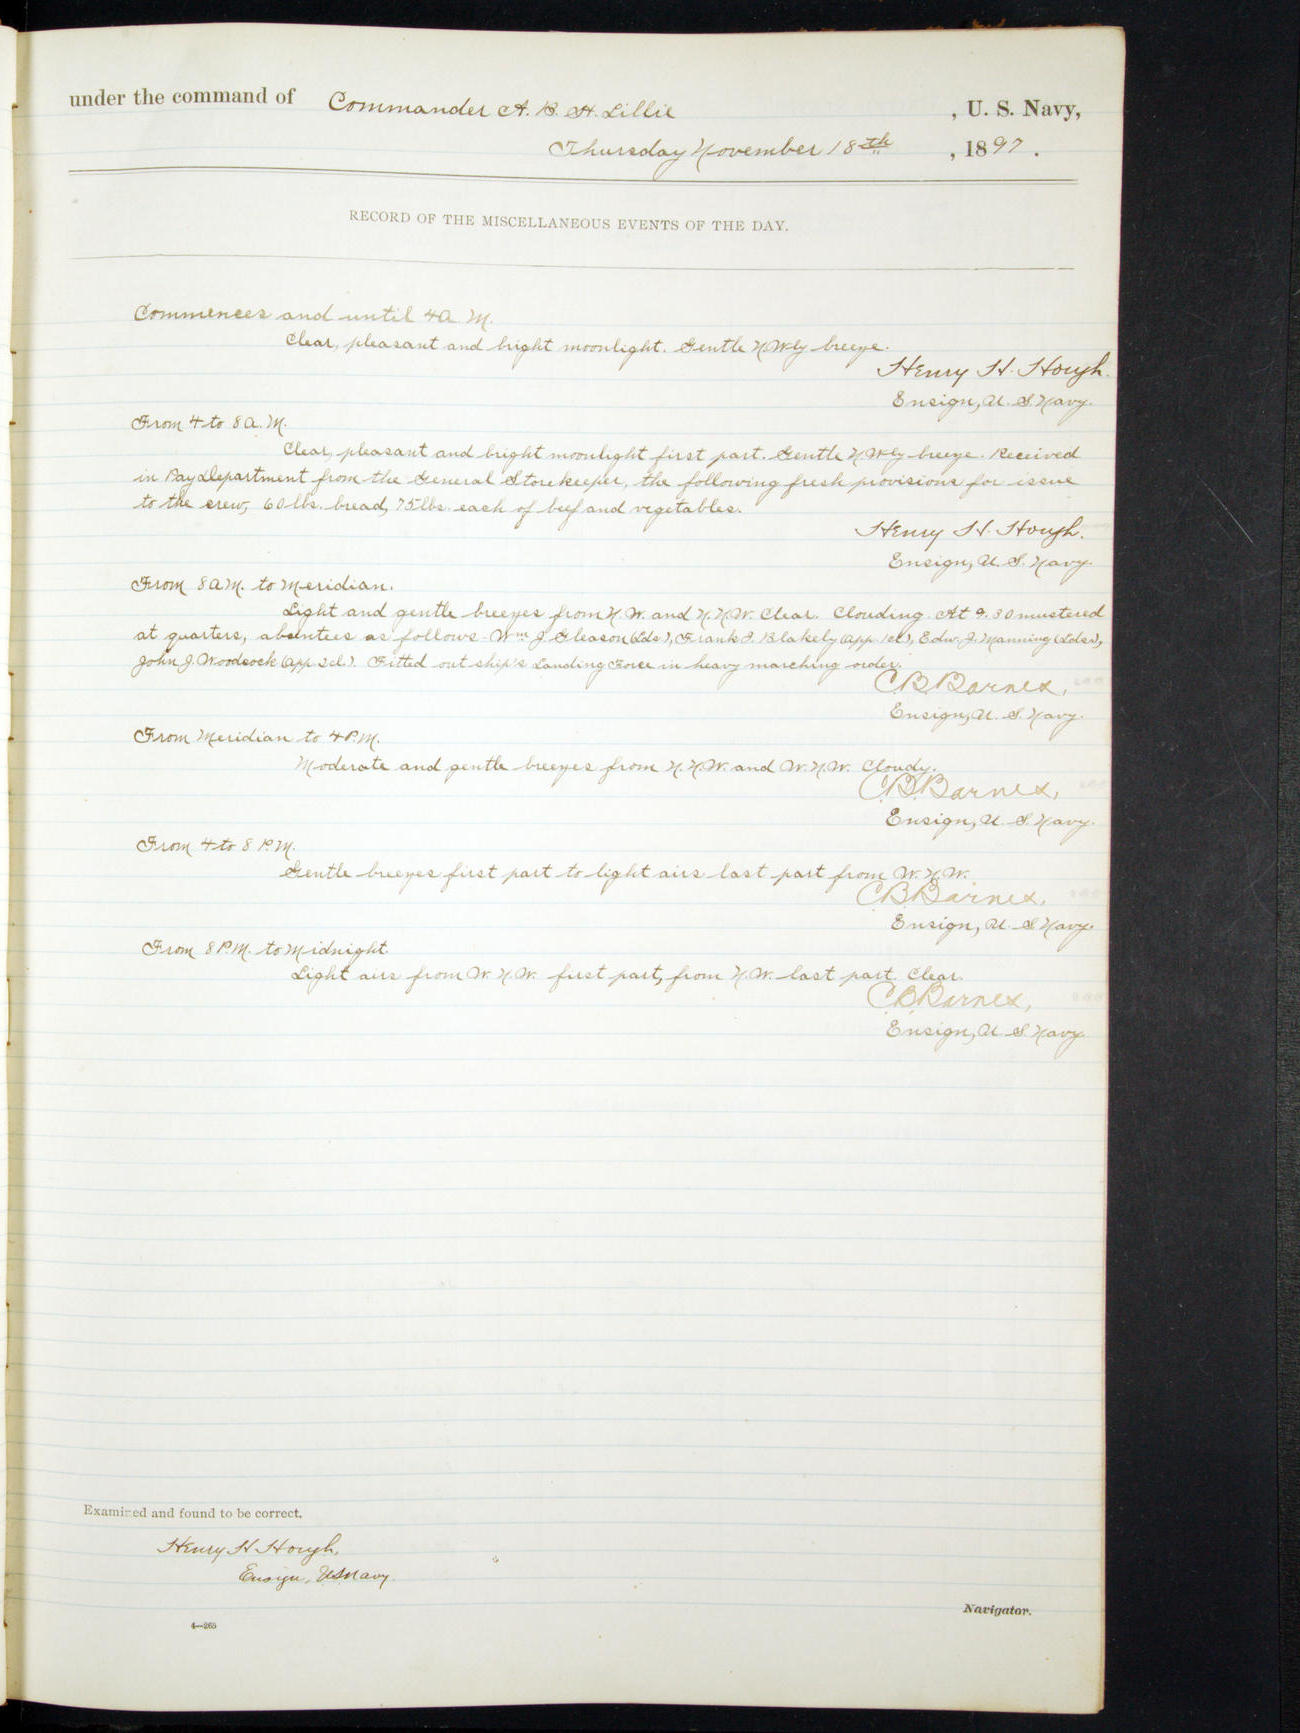 under the command of Commander A. B. H. Lillie , U. S. Navy,
Thursday November 18th , 1897 .
RECORD OF THE MISCELLANEOUS EVENTS OF THE DAY.
Commences and until 4 A. M.
Clear, pleasant and bright moonlight. Gentle N.W'ly breeze.
Henry H. Hough.
Ensign, U. S. Navy.
From 4 to 8 A. M.
Clear, pleasant and bright moonlight first part. Gentle N.W'ly breeze. Received
in Pay Department from the General Storekeeper, the following fresh provisions for issue
to the crew, 60 lbs. bread, 75 lbs. each of beef and vegetables.
Henry H. Hough.
Ensign, U. S. Navy.
From 8 A.M. to Meridian.
Light and gentle breezes from N.W. and N.N.W. Clear. Clouding. At 9.30 mustered
at quarters, absentees as follows. Wm J. Gleason (Lds), Frank J. Blakely (app. 1cl), Edw. J. Manning (Lds),
John J. Woodcock (app 2cl). Fitted out ship's Landing Force in heavy marching order.
C. B. Barnes,
Ensign, U. S. Navy.
From Meridian to 4 P.M.
Moderate and gentle breezes from N.N.W. and W.N.W. Cloudy.
C. B. Barnes,
Ensign, U. S. Navy.
From 4 to 8 P.M.
Gentle breezes first part to light airs last part from W.N.W.
C. B. Barnes,
Ensign, U. S. Navy.
From 8 P.M. to Midnight.
Light airs from W.N.W. first part, from N.W. last part. Clear.
C. B. Barnes,
Ensign, U. S. Navy
Examined and found to be correct.
Henry H. Hough,
Ensign, U.S. Navy.
Navigator.
4—265